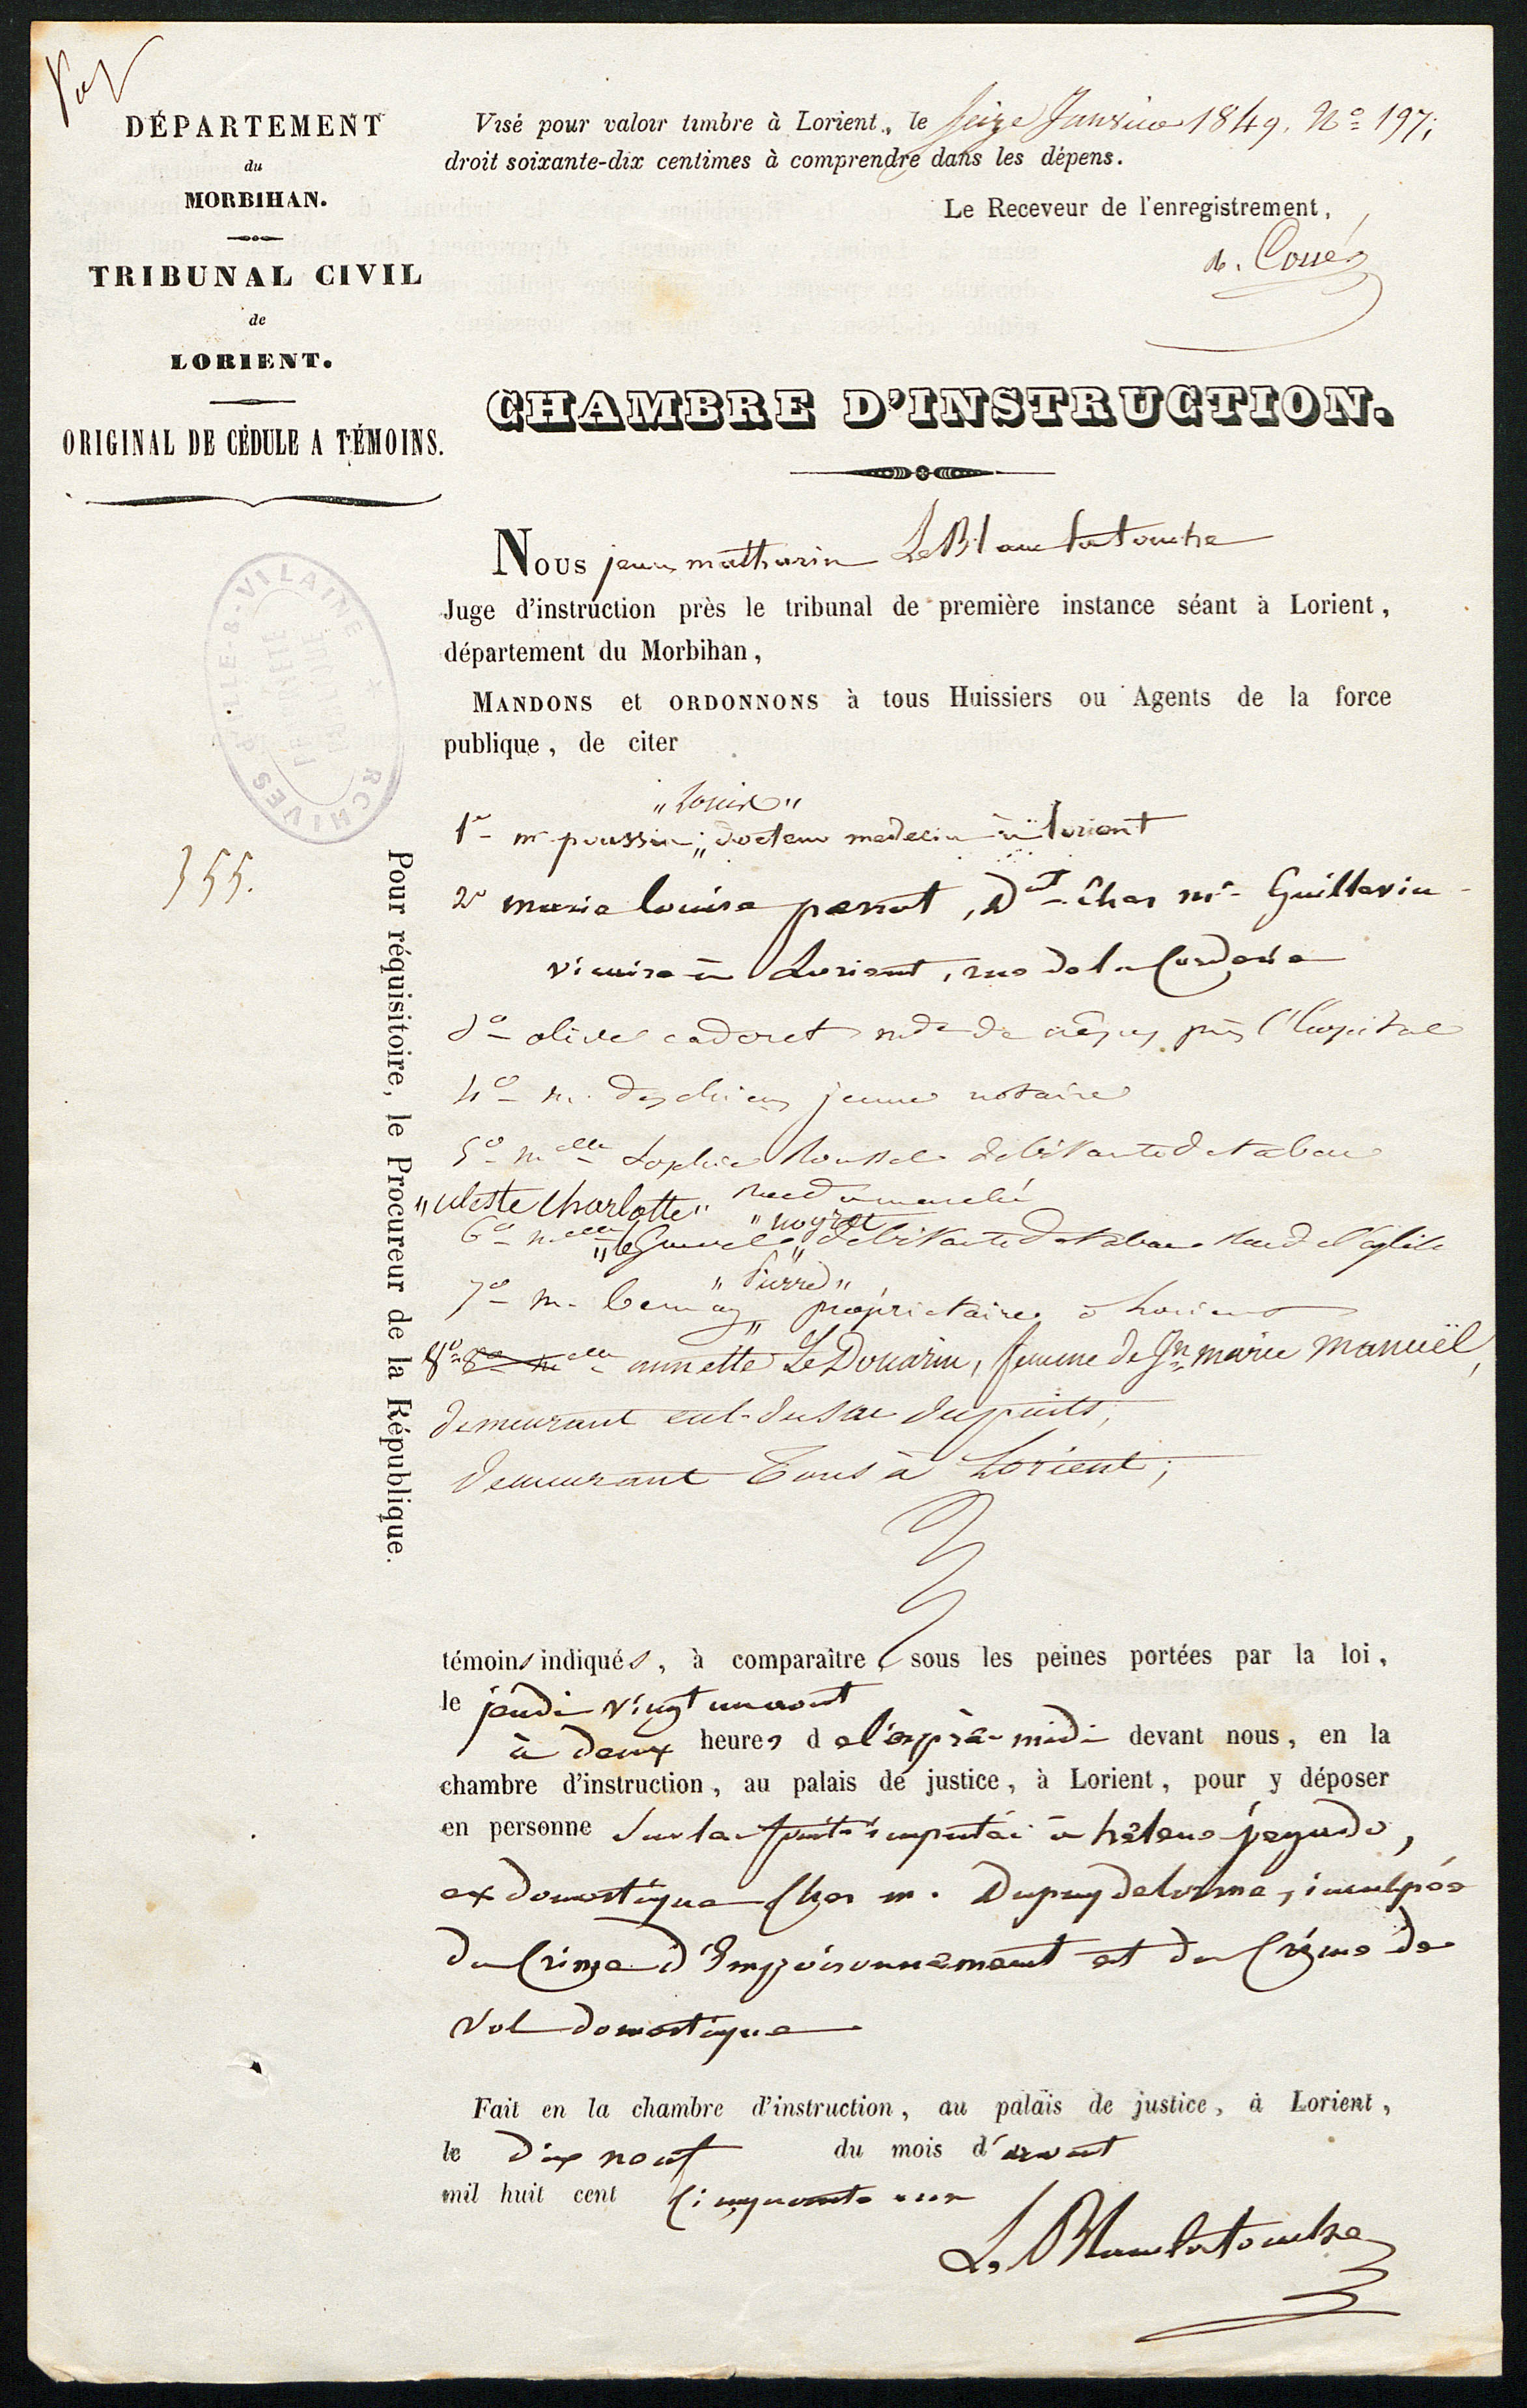 Vu
DÉPARTEMENT
du
MORBIHAN.
TRIBUNAL CIVIL
de
LORIENT.
ORIGINAL DE CÉDULE A TÉMOINS.
Visé pour valoir timbre à Lorient, le seize Janvier 1849. No 197;
droit soixante-dix centimes à comprendre dans les dépens.
Le Receveur de l'enregistrement,
CHAMBRE D'INSTRUCTION.
Nous jean mathurin Le Blanc Latouche
Juge d'instruction près le tribunal de première instance séant à Lorient,
département du Morbihan,
MANDONS et ORDONNONS à tous Huissiers ou Agents de la force
publique, de citer
"Louis"
1o mr poussin; docteur medecin à lorient
2o marie louise perrot, Dt chez mr Guillevin
vicaire à Lorient, rue de la Corderie
3o olive cadoret mde de crêpes près l'hopital
4o m. deschiens jeune notaire
5o melle Sophie Roussel debitante de tabac
rue du marché
"celeste charlotte" "noyret"
6o melle "le Gouvello" debitante de tabac rue de l'église
"Pierre"
7o m. propriétaire à Lorient
8o annette Le Douarin, femme de Jn marie Manuël,
demeurant cul-de-sac du puits,
demeurant Tous à Lorient;
355.
Pour réquisitoire, le Procureur de la République.
ARCHIVES ILLE-&-VILAINE
témoins indiqués, à comparaître sous les peines portées par la loi,
le jeudi vingt un aout
à deux heures de l'après-midi devant nous, en la
chambre d'instruction, au palais de justice, à Lorient, pour y déposer
en personne sur les faits imputés à hélène jegado,
ex domestique chez m. Dupuy delorme, inculpée
du Crime d'Empoisonnement et du Crime de
Vol domestique
Fait en la chambre d'instruction, au palais de justice, à Lorient,
le dix neuf du mois d'aout
mil huit cent cinquante un
Le Blanc Latouche